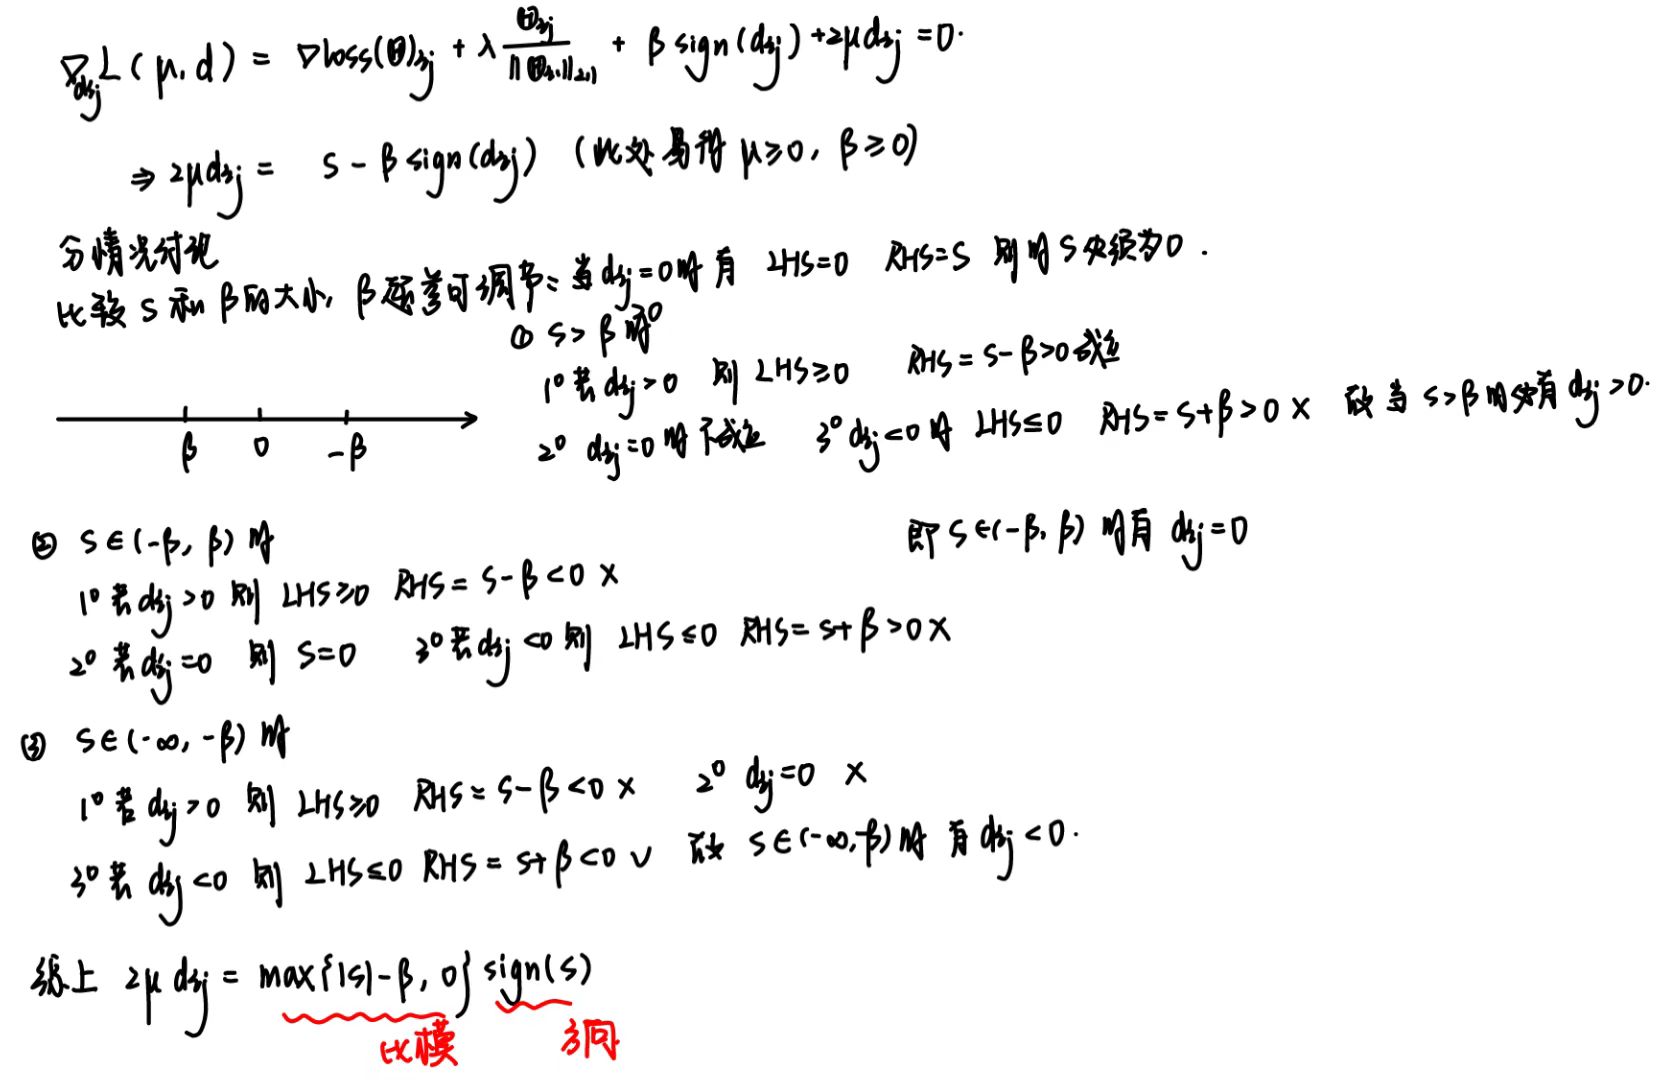 ∇_{d_{3j}} L(μ, d) = ∇loss(Θ)_{3j} + λ Θ_{3j} / ||Θ_{3,·}||_{2,1} + β sign(d_{3j}) + 2μd_{3j} = 0.
⇒ 2μd_{3j} = S - β sign(d_{3j}) (此处易得 μ≥0, β≥0)
分情况讨论
比较 S 和 β 的大小, β 可调节: 当 d_{3j}=0时有 LHS=0 RHS=S 则 S 必须为0.
① S>β 时
1° 若 d_{3j}>0 则 LHS≥0 RHS=S-β>0 成立
2° d_{3j}=0 时不成立 3° d_{3j}<0 时 LHS≤0 RHS=S+β>0 × 故当 S>β 时必有 d_{3j}>0.
β 0 -β
② S∈(-β, β) 时
即 S∈(-β, β) 时有 d_{3j}=0
1° 若 d_{3j}>0 则 LHS≥0 RHS=S-β<0 ×
2° 若 d_{3j}=0 则 S=0 3° 若 d_{3j}<0 则 LHS≤0 RHS=S+β>0 ×
③ S∈(-∞, -β) 时
1° 若 d_{3j}>0 则 LHS≥0 RHS=S-β<0 × 2° d_{3j}=0 ×
3° 若 d_{3j}<0 则 LHS≤0 RHS=S+β<0 ∨ 故 S∈(-∞,-β) 时 有 d_{3j}<0.
综上 2μ d_{3j} = max{|S|-β, 0} sign(S)
比模 方向